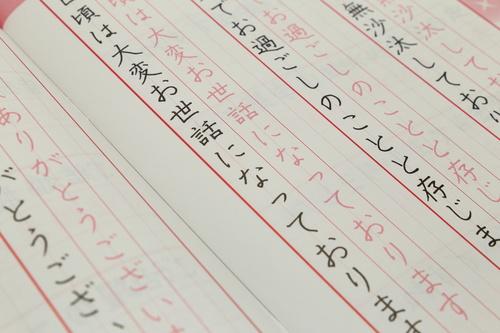 沙汰してお
無沙汰しており
お過ごしのことと存じ
でお過ごしのことと存じま
頃は大変お世話になっております
頃は大変お世話になっております
ありがとうござい
がとうござい